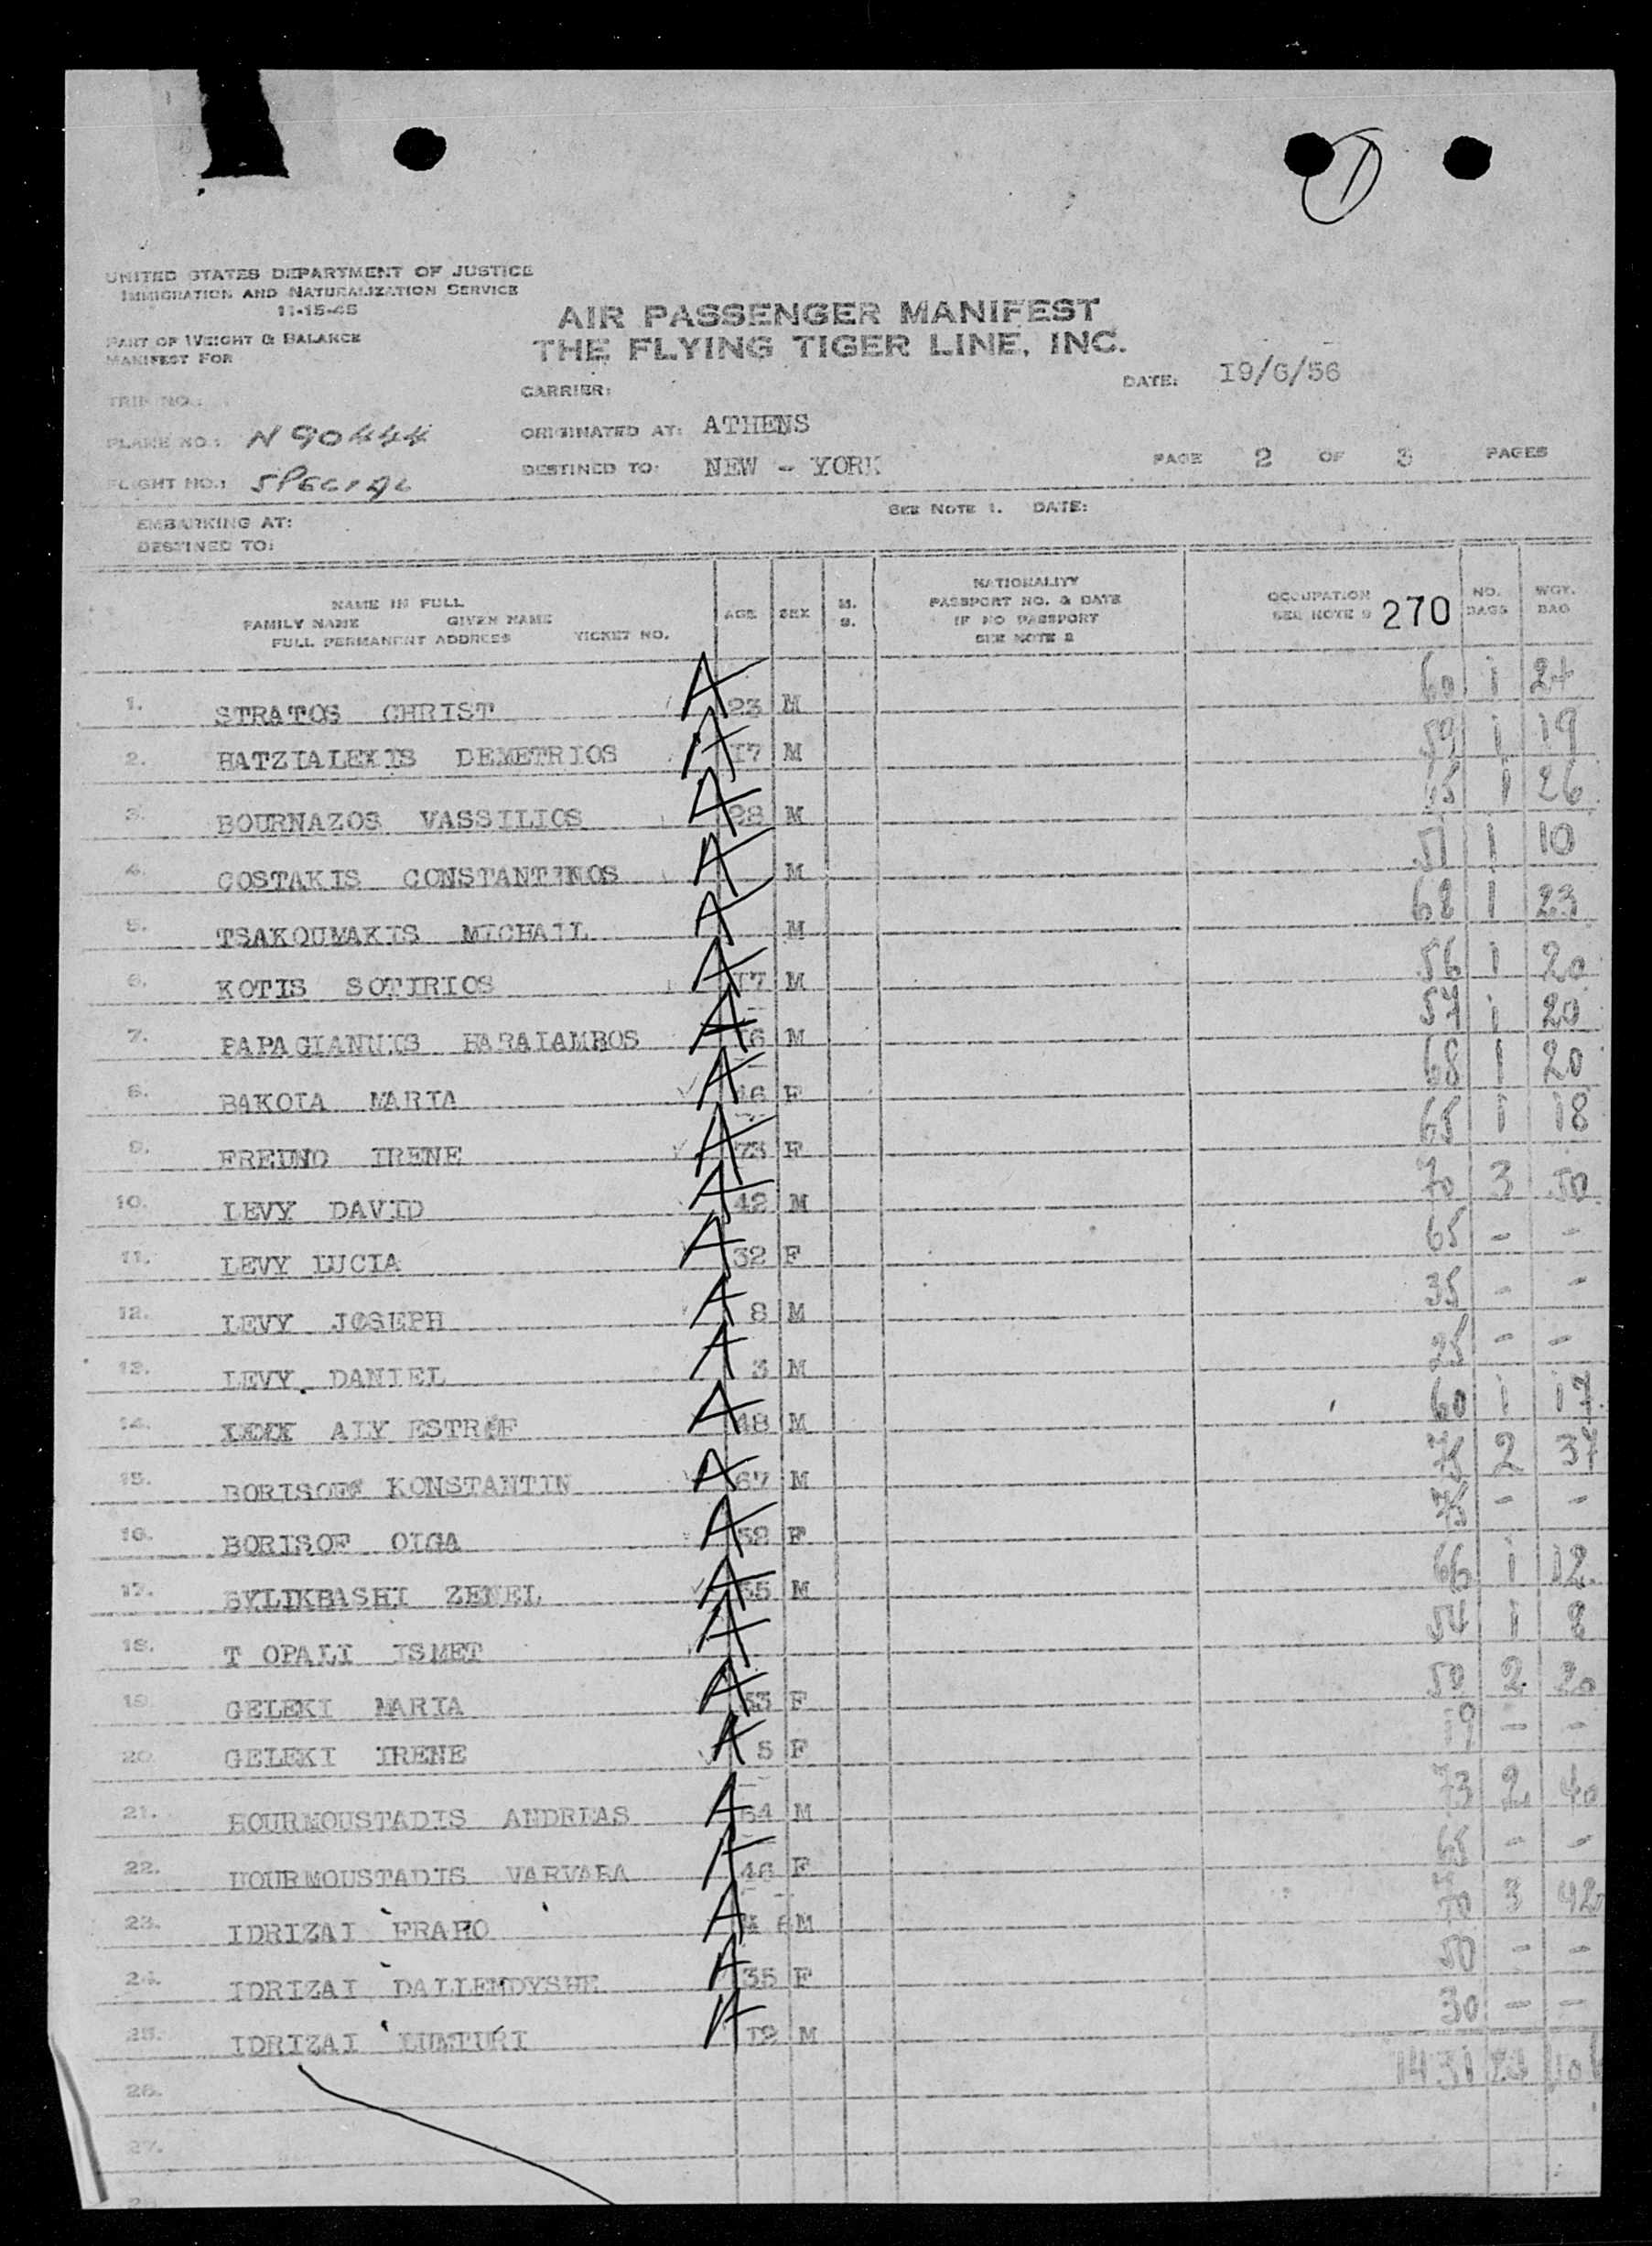 1
UNITED STATES DEPARTMENT OF JUSTICE
IMMIGRATION AND NATURALIZATION SERVICE
11-15-45
PART OF WEIGHT & BALANCE
MANIFEST FOR
AIR PASSENGER MANIFEST
THE FLYING TIGER LINE, INC.
TRIP NO.:
CARRIER:
DATE: I9/6/56
PLANE NO.: N 90444
ORIGINATED AT: ATHENS
FLIGHT NO.: SPECIAL
DESTINED TO: NEW - YORK
PAGE 2 OF 3 PAGES
EMBARKING AT:
SEE NOTE 1. DATE:
DESTINED TO:
NAME IN FULL
FAMILY NAME GIVEN NAME
FULL PERMANENT ADDRESS TICKET NO.
AGE SEX M. S.
NATIONALITY
PASSPORT NO. & DATE
IF NO PASSPORT
SEE NOTE 2
OCCUPATION
SEE NOTE 9 270
NO. BAGS
WGT. BAG
1. STRATOS CHRIST A 23 M 60 1 24
2. HATZIALEXIS DEMETRIOS A I7 M 59 1 19
3. BOURNAZOS VASSILIOS A 28 M 65 1 26
4. COSTAKIS CONSTANTINOS A M 51 1 10
5. TSAKOUMAKIS MICHAIL A M 68 1 23
6. KOTIS SOTIRIOS A I7 M 56 1 20
7. PAPAGIANNIS HARALAMBOS A I6 M 57 1 20
8. BAKOLA MARIA A 46 F 68 1 20
9. FREUND IRENE A 73 F 65 1 18
10. LEVY DAVID A 42 M 70 3 50
11. LEVY LUCIA A 32 F 65 - -
12. LEVY JOSEPH A 8 M 35 - -
13. LEVY. DANIEL A 3 M 25 - -
14. ALY ESTREF A 48 M 60 1 17
15. BORISOF KONSTANTIN A 67 M 75 2 37
16. BORISOF OLGA A 58 F 75 - -
17. BYLIKBASHI ZENEL A 35 M 66 1 12
18. T OPALI ISMET A 54 1 8
19. GELEKI MARIA A 33 F 50 2 20
20. GELEKI IRENE A 5 F 19 - -
21. HOURMOUSTADIS ANDREAS A 64 M 73 2 40
22. HOURMOUSTADIS VARVARA A 46 F 65 - -
23. IDRIZAI FRAHO A M 70 3 42
24. IDRIZAI DALLENDYSHE A 35 F 50 - -
25. IDRIZAI LUMTURI A I2 M 30 - -
26. 1431
27.